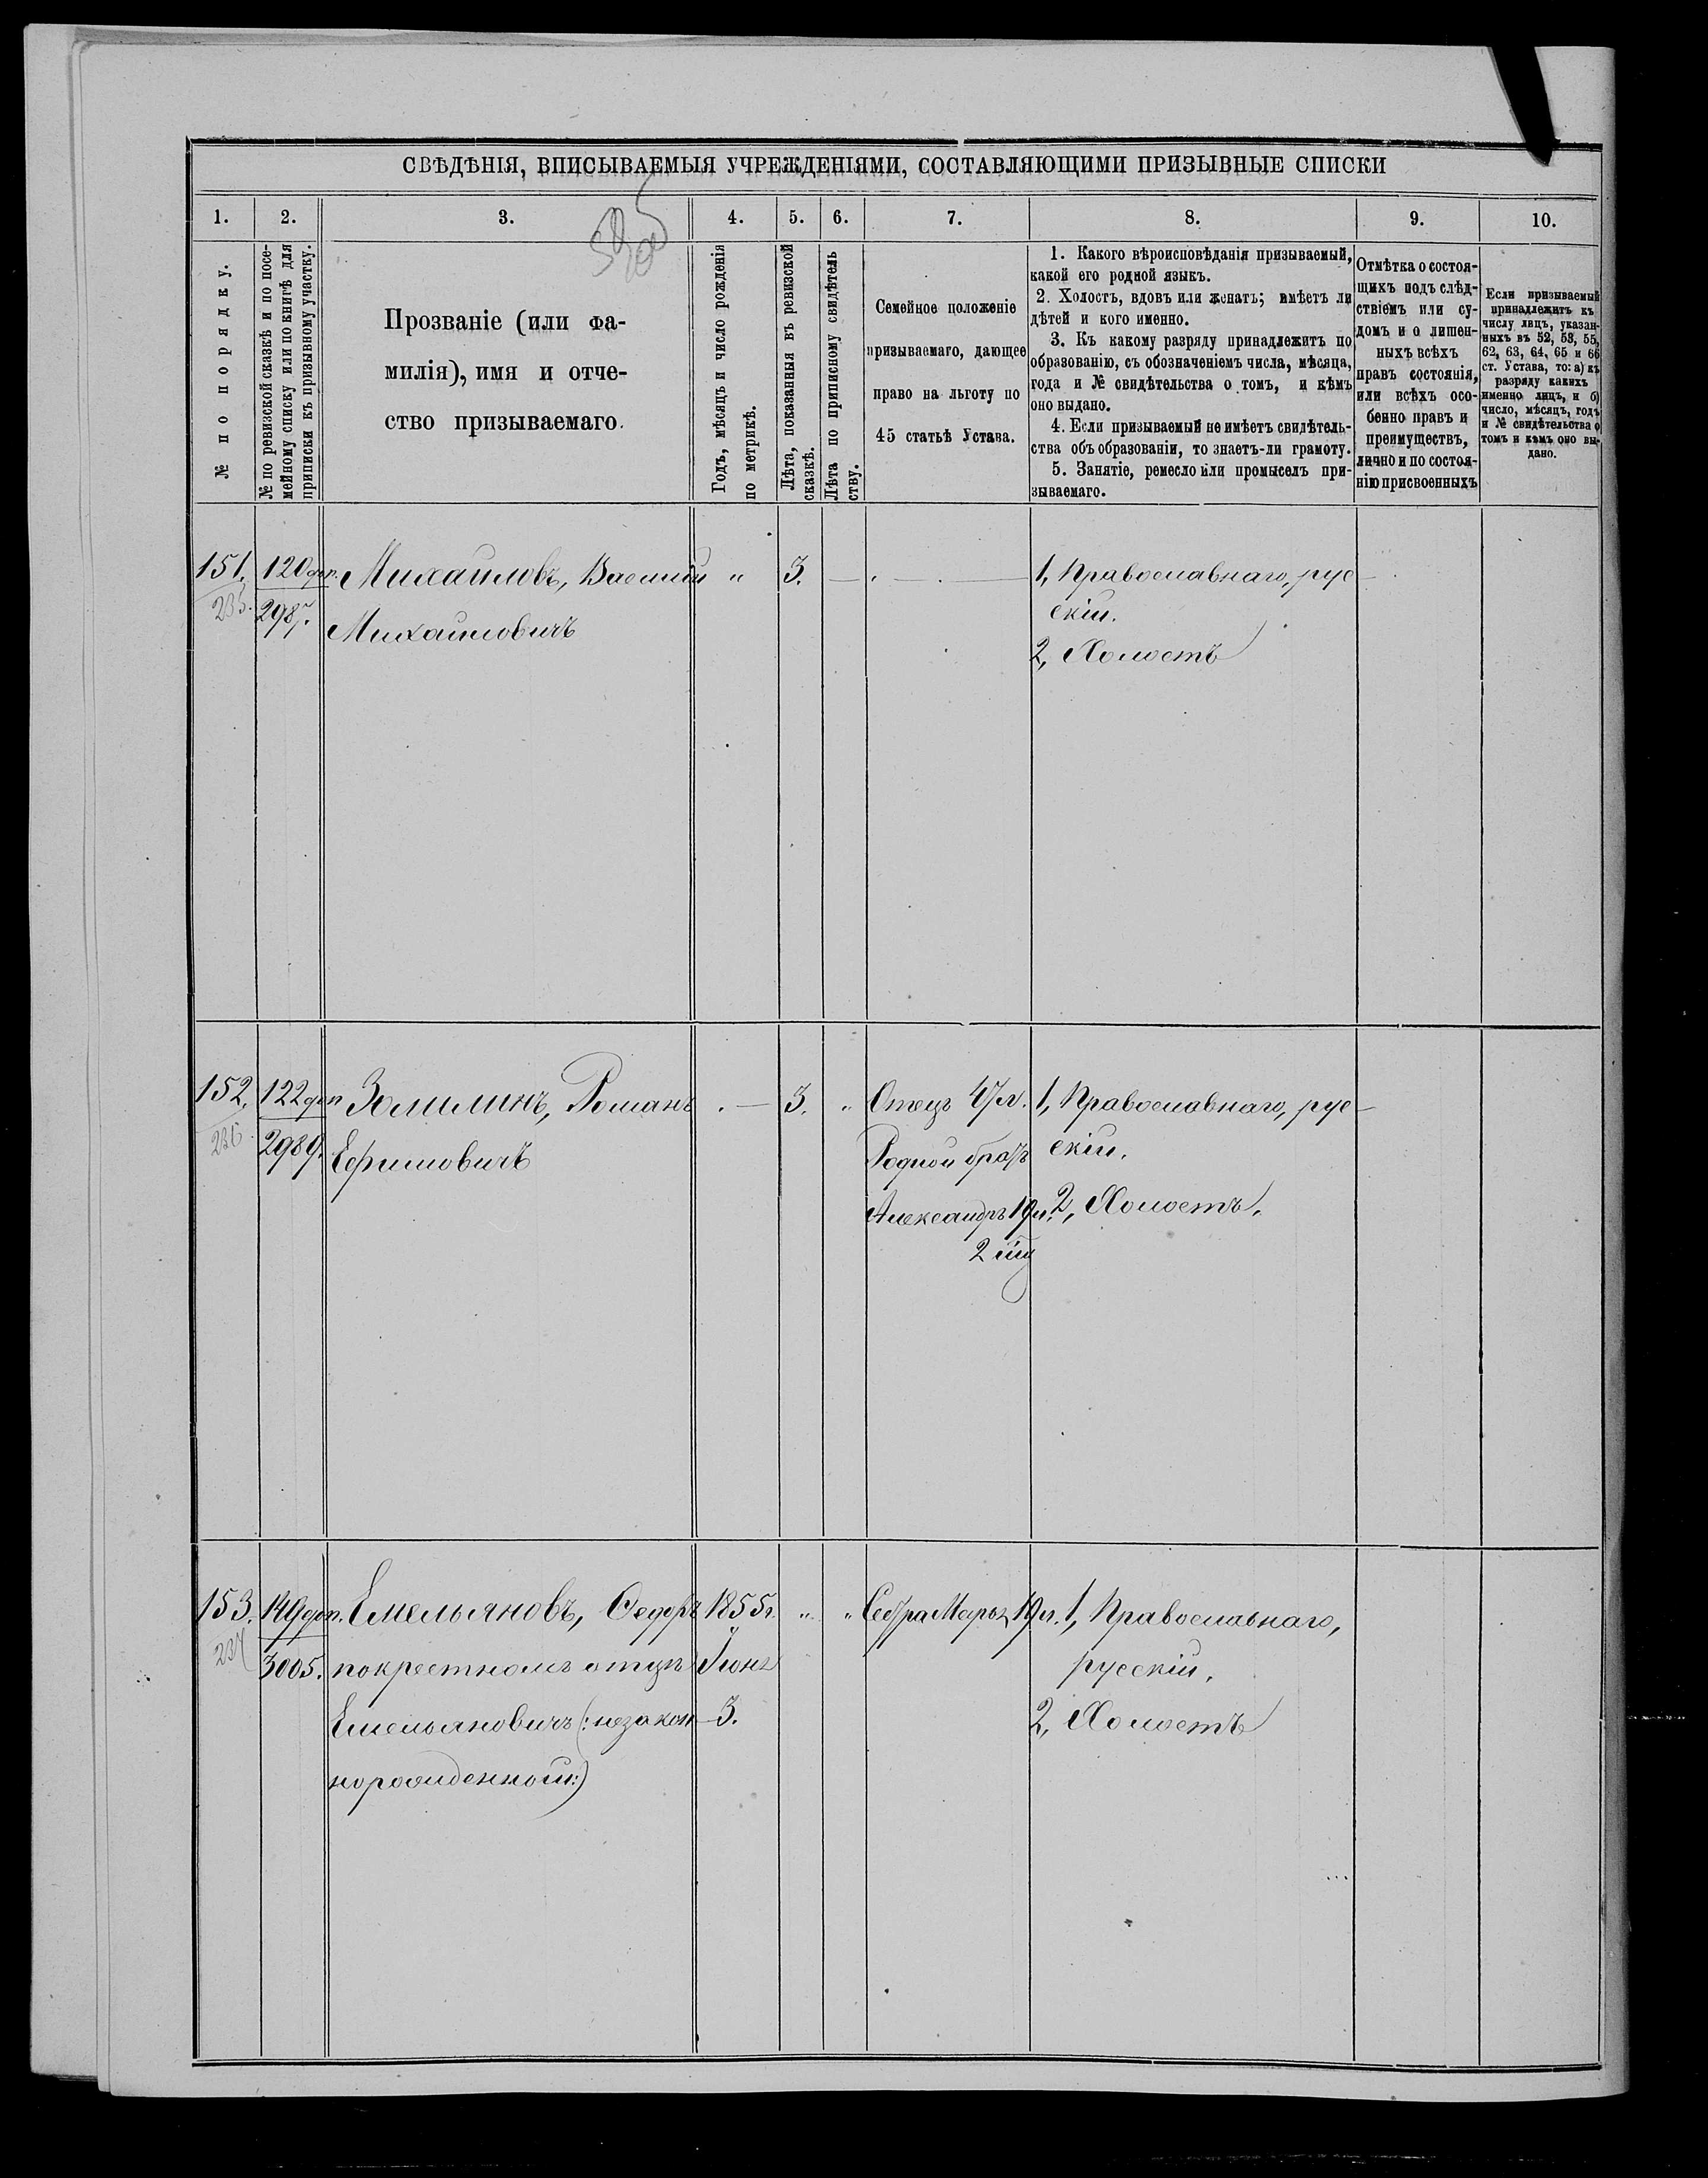 СВѢДѢНІЯ, ВПИСЫВАЕМЫЯ УЧРЕЖДЕНІЯМИ, СОСТАВЛЯЮЩИМИ ПРИЗЫВНЫЕ СПИСКИ
1. 2. 3. 4. 5. 6. 7. 8. 9. 10.
№ по порядку.
№ по ревизской сказкѣ и по посе-
мейному списку или по книгѣ для
приписки къ призывному участку.
Прозваніе (или фа-
милія), имя и отче-
ство призываемаго.
Годъ, мѣсяцъ и число рожденія
по метрикѣ.
Лѣта, показанныя въ ревизской
сказкѣ.
Лѣта по приписному свидѣтель
ству.
Семейное положеніе
призываемаго, дающее
право на льготу по
45 статьѣ Устава.
1. Какого вѣроисповѣданія призываемый,
какой его родной языкъ.
2. Холостъ, вдовъ или женатъ; имѣетъ ли
дѣтей и кого именно.
3. Къ какому разряду принадлежитъ по
образованію, съ обозначеніемъ числа, мѣсяца,
года и № свидѣтельства о томъ, и кѣмъ
оно выдано.
4. Если призываемый не имѣетъ свидѣтель-
ства объ образованіи, то знаетъ-ли грамоту.
5. Занятіе, ремесло или промыселъ при-
зываемаго.
Отмѣтка о состоя-
щихъ подъ слѣд-
ствіемъ или су-
домъ и о лишен-
ныхъ всѣхъ
правъ состоянія,
или всѣхъ осо-
бенно правъ и
преимуществъ,
лично и по состоя-
нію присвоенныхъ
Если призываемый
принадлежитъ къ
числу лицъ, указан-
ныхъ въ 52, 53, 55,
62, 63, 64, 65 и 66
ст. Устава, то: а) къ
разряду какихъ
именно лицъ, и б)
число, мѣсяцъ, годъ
и № свидѣтельства о
томъ и кѣмъ оно вы-
дано.
151. 120 доп. Михайловъ, Василій " 3. 1, Православнаго, рус
235. 2987. Михайловичъ
скій.
2, Холостъ
152. 122 доп Романъ 3. " Отецъ 47 л. 1, Православнаго, рус
236. 2989. Ефимовичъ Родной братъ скій.
Александръ 19 л. 2, Холостъ.
153. 149 доп. Емельяновъ, Ѳедоръ 1855 г. " " Сестра Марья 19 л. 1, Православнаго,
237 3005. по крестному отцу Іюня русскій.
Емельяновичъ (: незакон 3. 2, Холостъ
норожденный:)